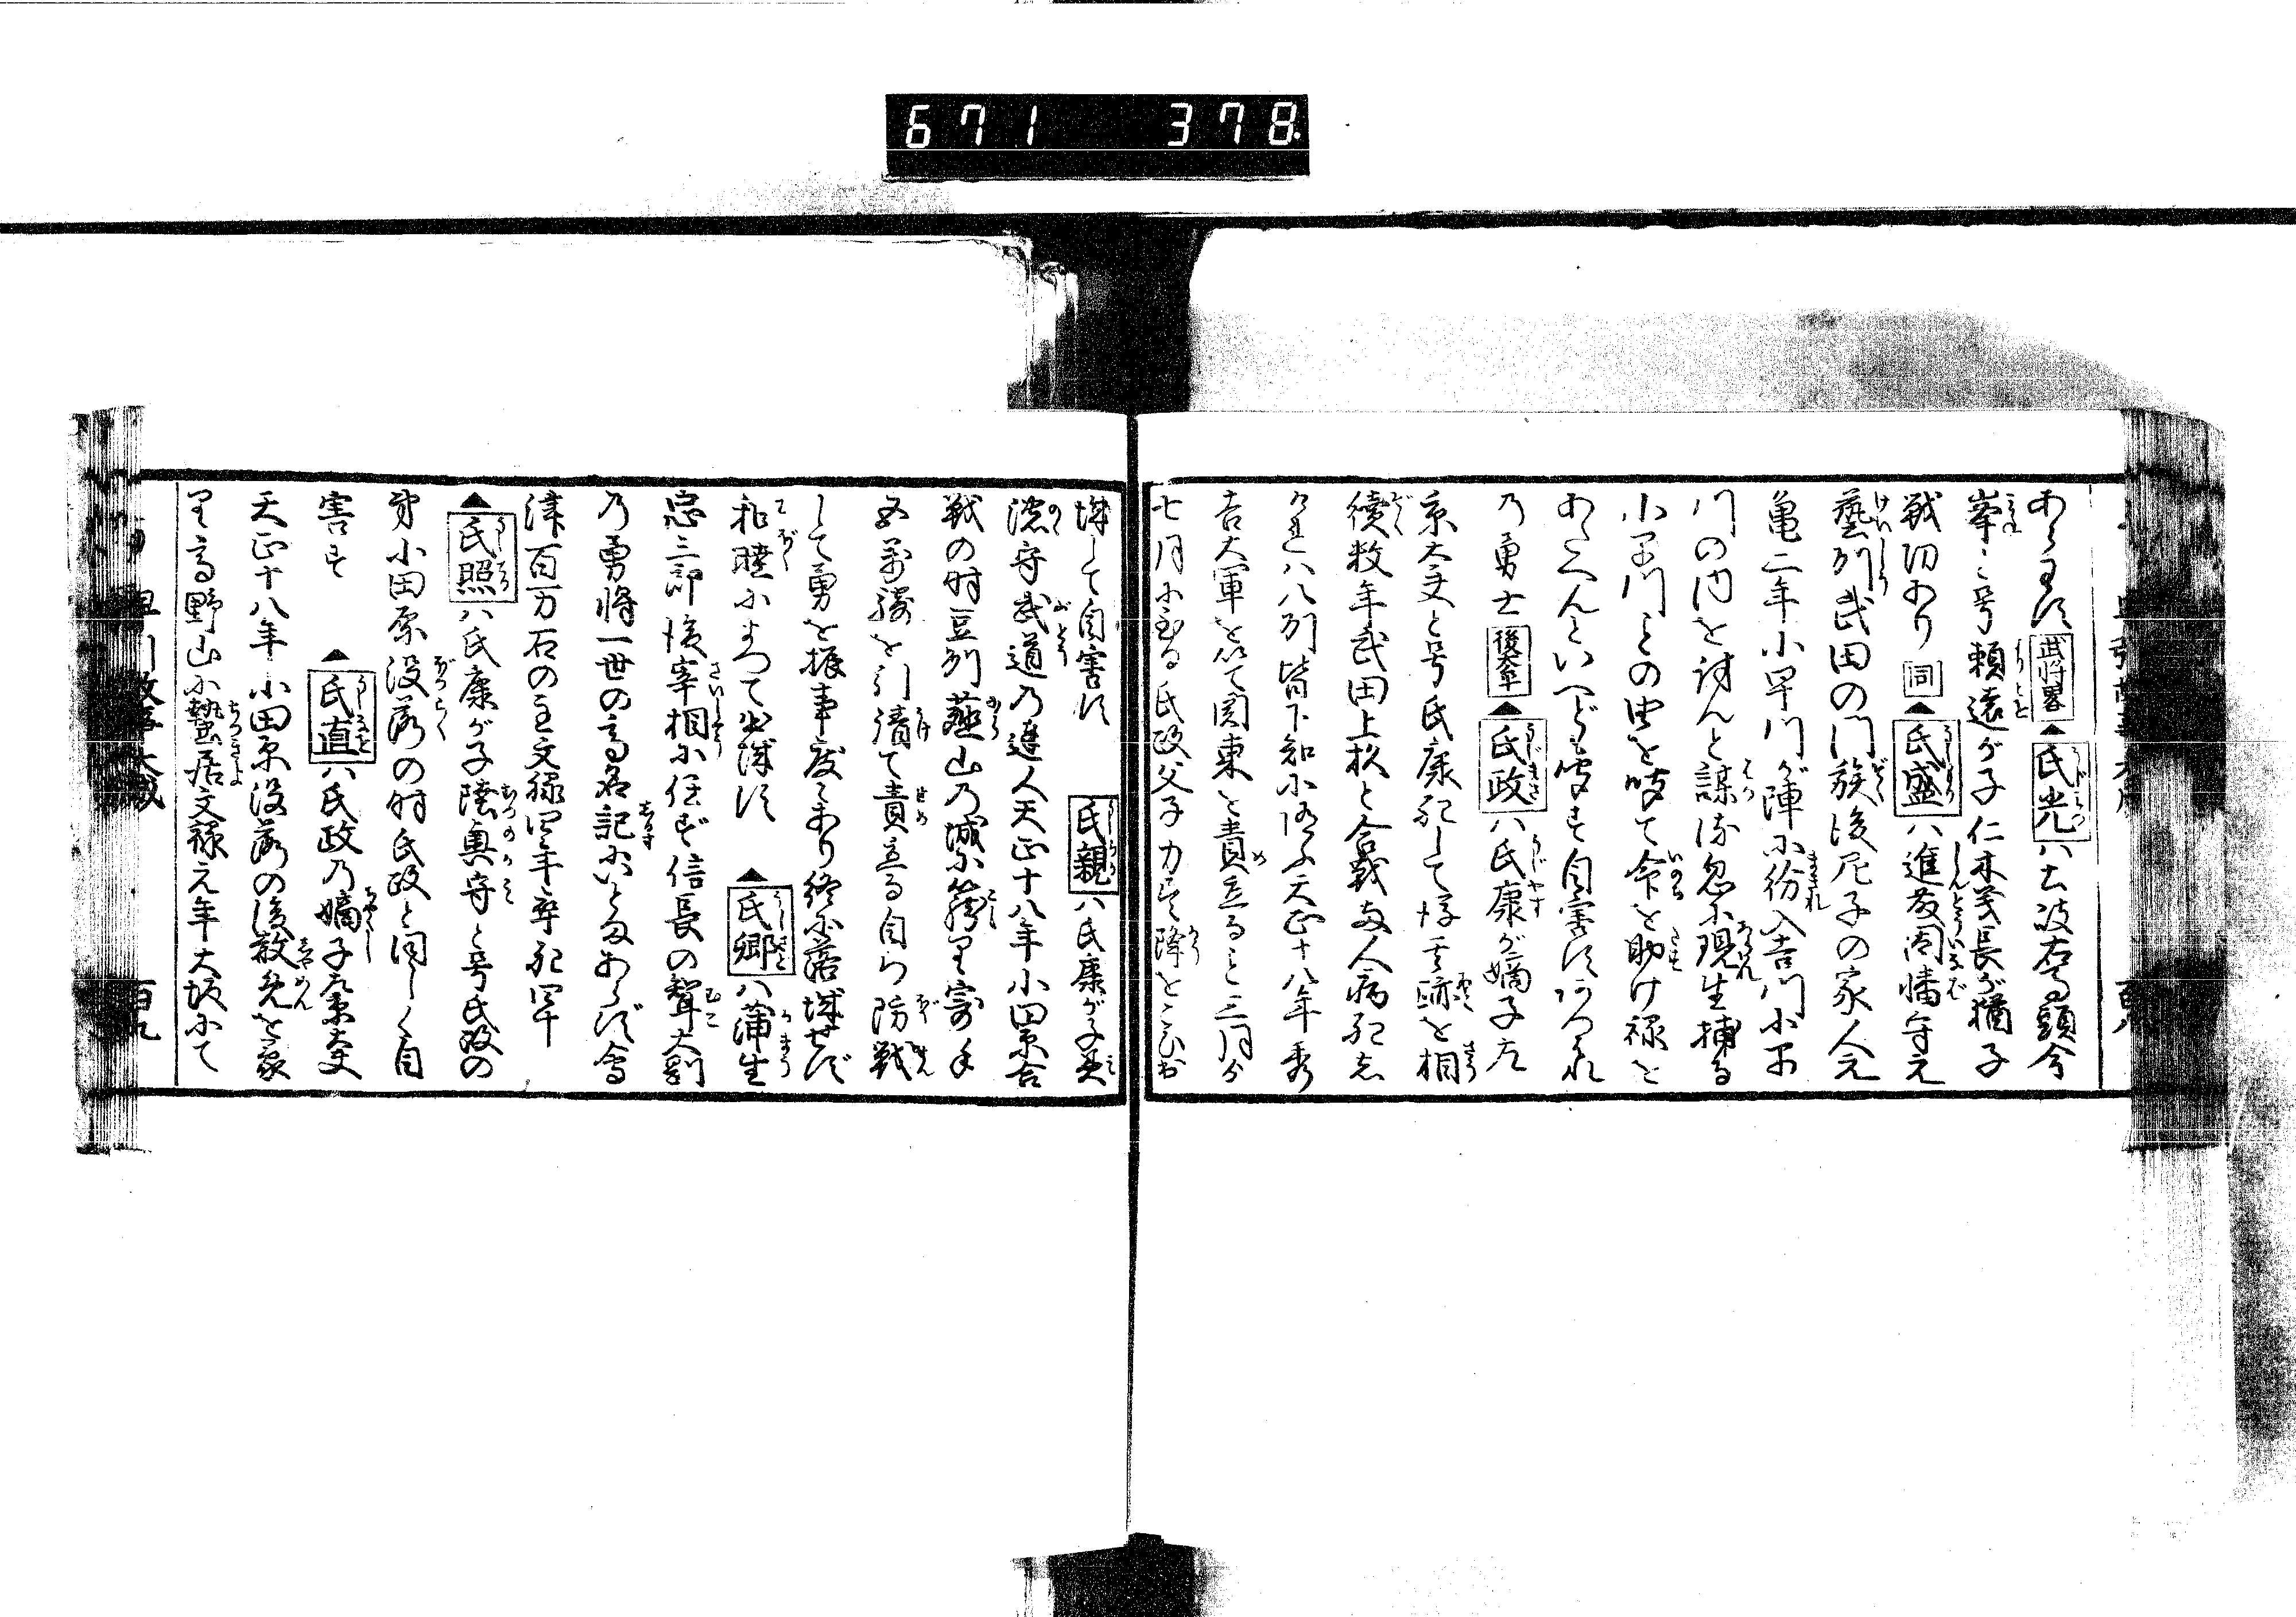 671 378
あらハす 武将畧 ▲氏光ハ土岐右馬頭今
峯と号頼遠が子仁木義長が猶子
戦功あり 同 ▲氏盛ハ進藤因幡守元
藝州武田の門族後尼子の家人元
亀二年小早川が陣に紛入吉川小早
川の内を討んと謀られ忽に現生捕る
小早川其の忠を感て命を助け禄を
あたへんといへども聞ず自害す
乃勇士 後太平 ▲氏政ハ氏康が嫡子左
京大夫と号氏康死して後其跡を相
続数年武田上杉と合戦両人病死し
八州皆下知に随ふ天正十八年秀
吉大軍を以て関東を責るこ三月より
七月に至る氏政父子力尽降をこひ出
城して自害す 氏親ハ氏康が子美
濃守武道乃達人天正十八年小田原合
戦の時豆州韮山乃城に籠り寄手
五万騎を引請て責る自ら防戦
して勇を振事度々あり終に落城せず
和睦によつて出城す ▲氏郷ハ蒲生
忠三郎後宰相に任ず信長の聟大剛
乃勇将一世の高名記にいとまあらず会
津百万石の主文禄四年卒死四十
▲氏照ハ氏康が子陸奥守と号氏政の
弟小田原没落の時氏政と同しく自
害す ▲氏直ハ氏政乃嫡子左京大夫
天正十八年小田原没落の後赦免を蒙
り高野山に蟄居文禄元年大坂にて
百九